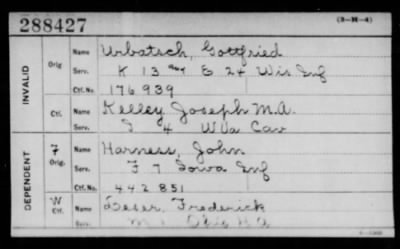 288427 (3-M-4)
INVALID
Orig
Name Urbatsch, Gottfried
Serv. K 13 & E 24 Wis Inf
Ctf. No. 176939
Ctf.
Name Kelley Joseph M.A.
Serv. I 4 W Va Cav
DEPENDENT
7 Orig.
Name Harness, John
Serv. F 7 Iowa Inf
Ctf. No. 442851
W Ctf.
Name Leser, Frederick
Serv. M 1 Ohio H A